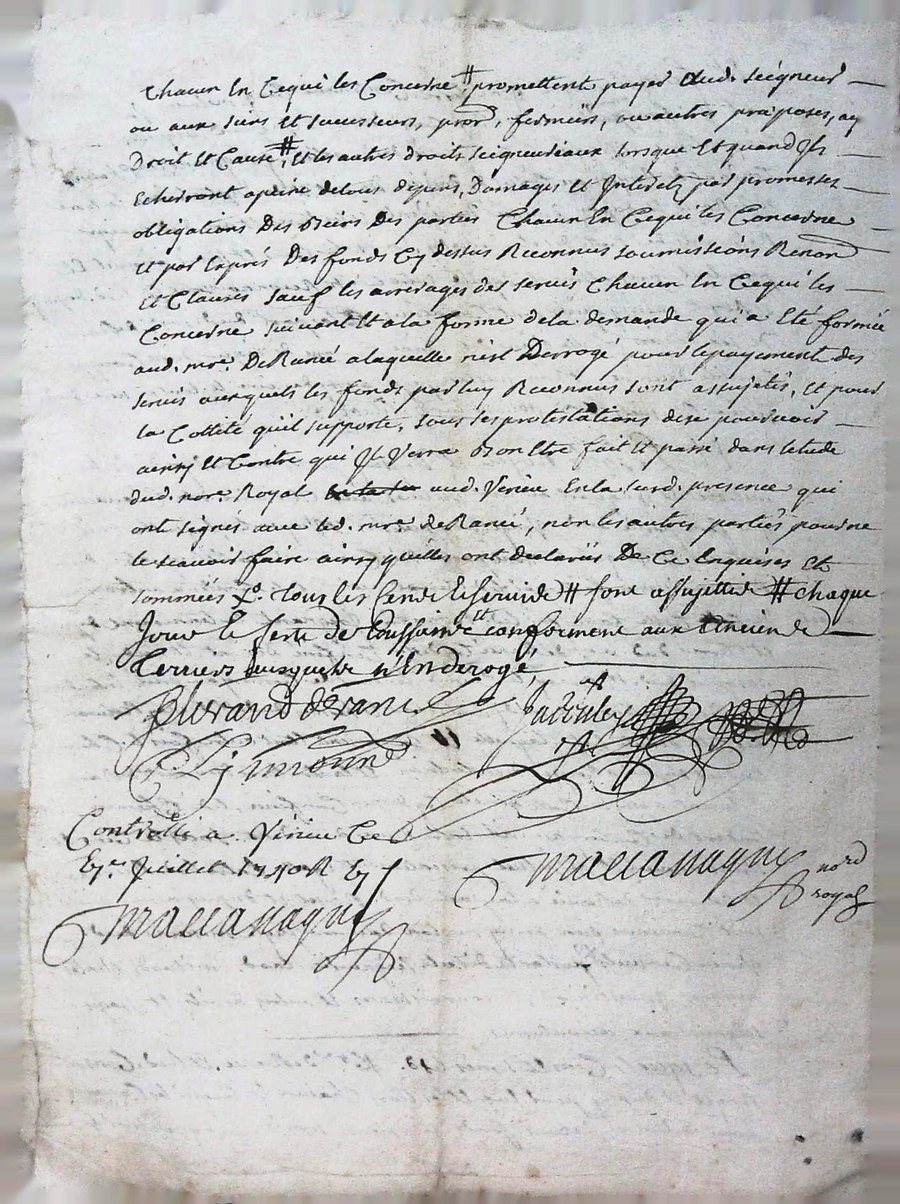 Chacun En Cequi les Concerne # promettent payer Aud. seigneur
ou aux siens Et successeurs, procr., fermiers, ou autres préposes, ay
Droit Et Cause #, Et les autres droits seigneuriaux lorsque Et quand Ils
Echerront a peine de tous depens, Damages Et Interets par promesses
obligations Des Biens Des parties Chacun En Cequi les Concerne
Et par Exprés Des fonds Cy dessus Reconnus soumissions Renon
Et Clauses sauf les arrerages des servis Chacun En Cequi les
Concerne suivant Et a la forme de la demande qui a Eté formée
aud. mre. De Rancé a laquelle n'est Derrogé pour le payement des
servis auxquels les fonds par luy Reconnus sont assujetis, Et pour
la Cottité qu'il supporte, sous ses protestations de se pourvoir
ainsy Et Contre qui Il Verra Bon Etre fait Et passé dans letude
dud. nore. Royal aud. Virieu En la susd. presence qui
ont signés avec led. mre. de Rancé, non les autres parties pour ne
le scavoir faire ainsy quelles ont declarées De Ce Enquises Et
sommées Xo. tous les Cens Et servis # sont assujettis # chaque
Jour Et feste de toussaints conforment aux Anciens
terriers Ausquels n'Enderogé
Durand de rancé
Lymonne
Controllé a Virieu Ce
Juillet
Maccanagny
Maccanagny nord
royal